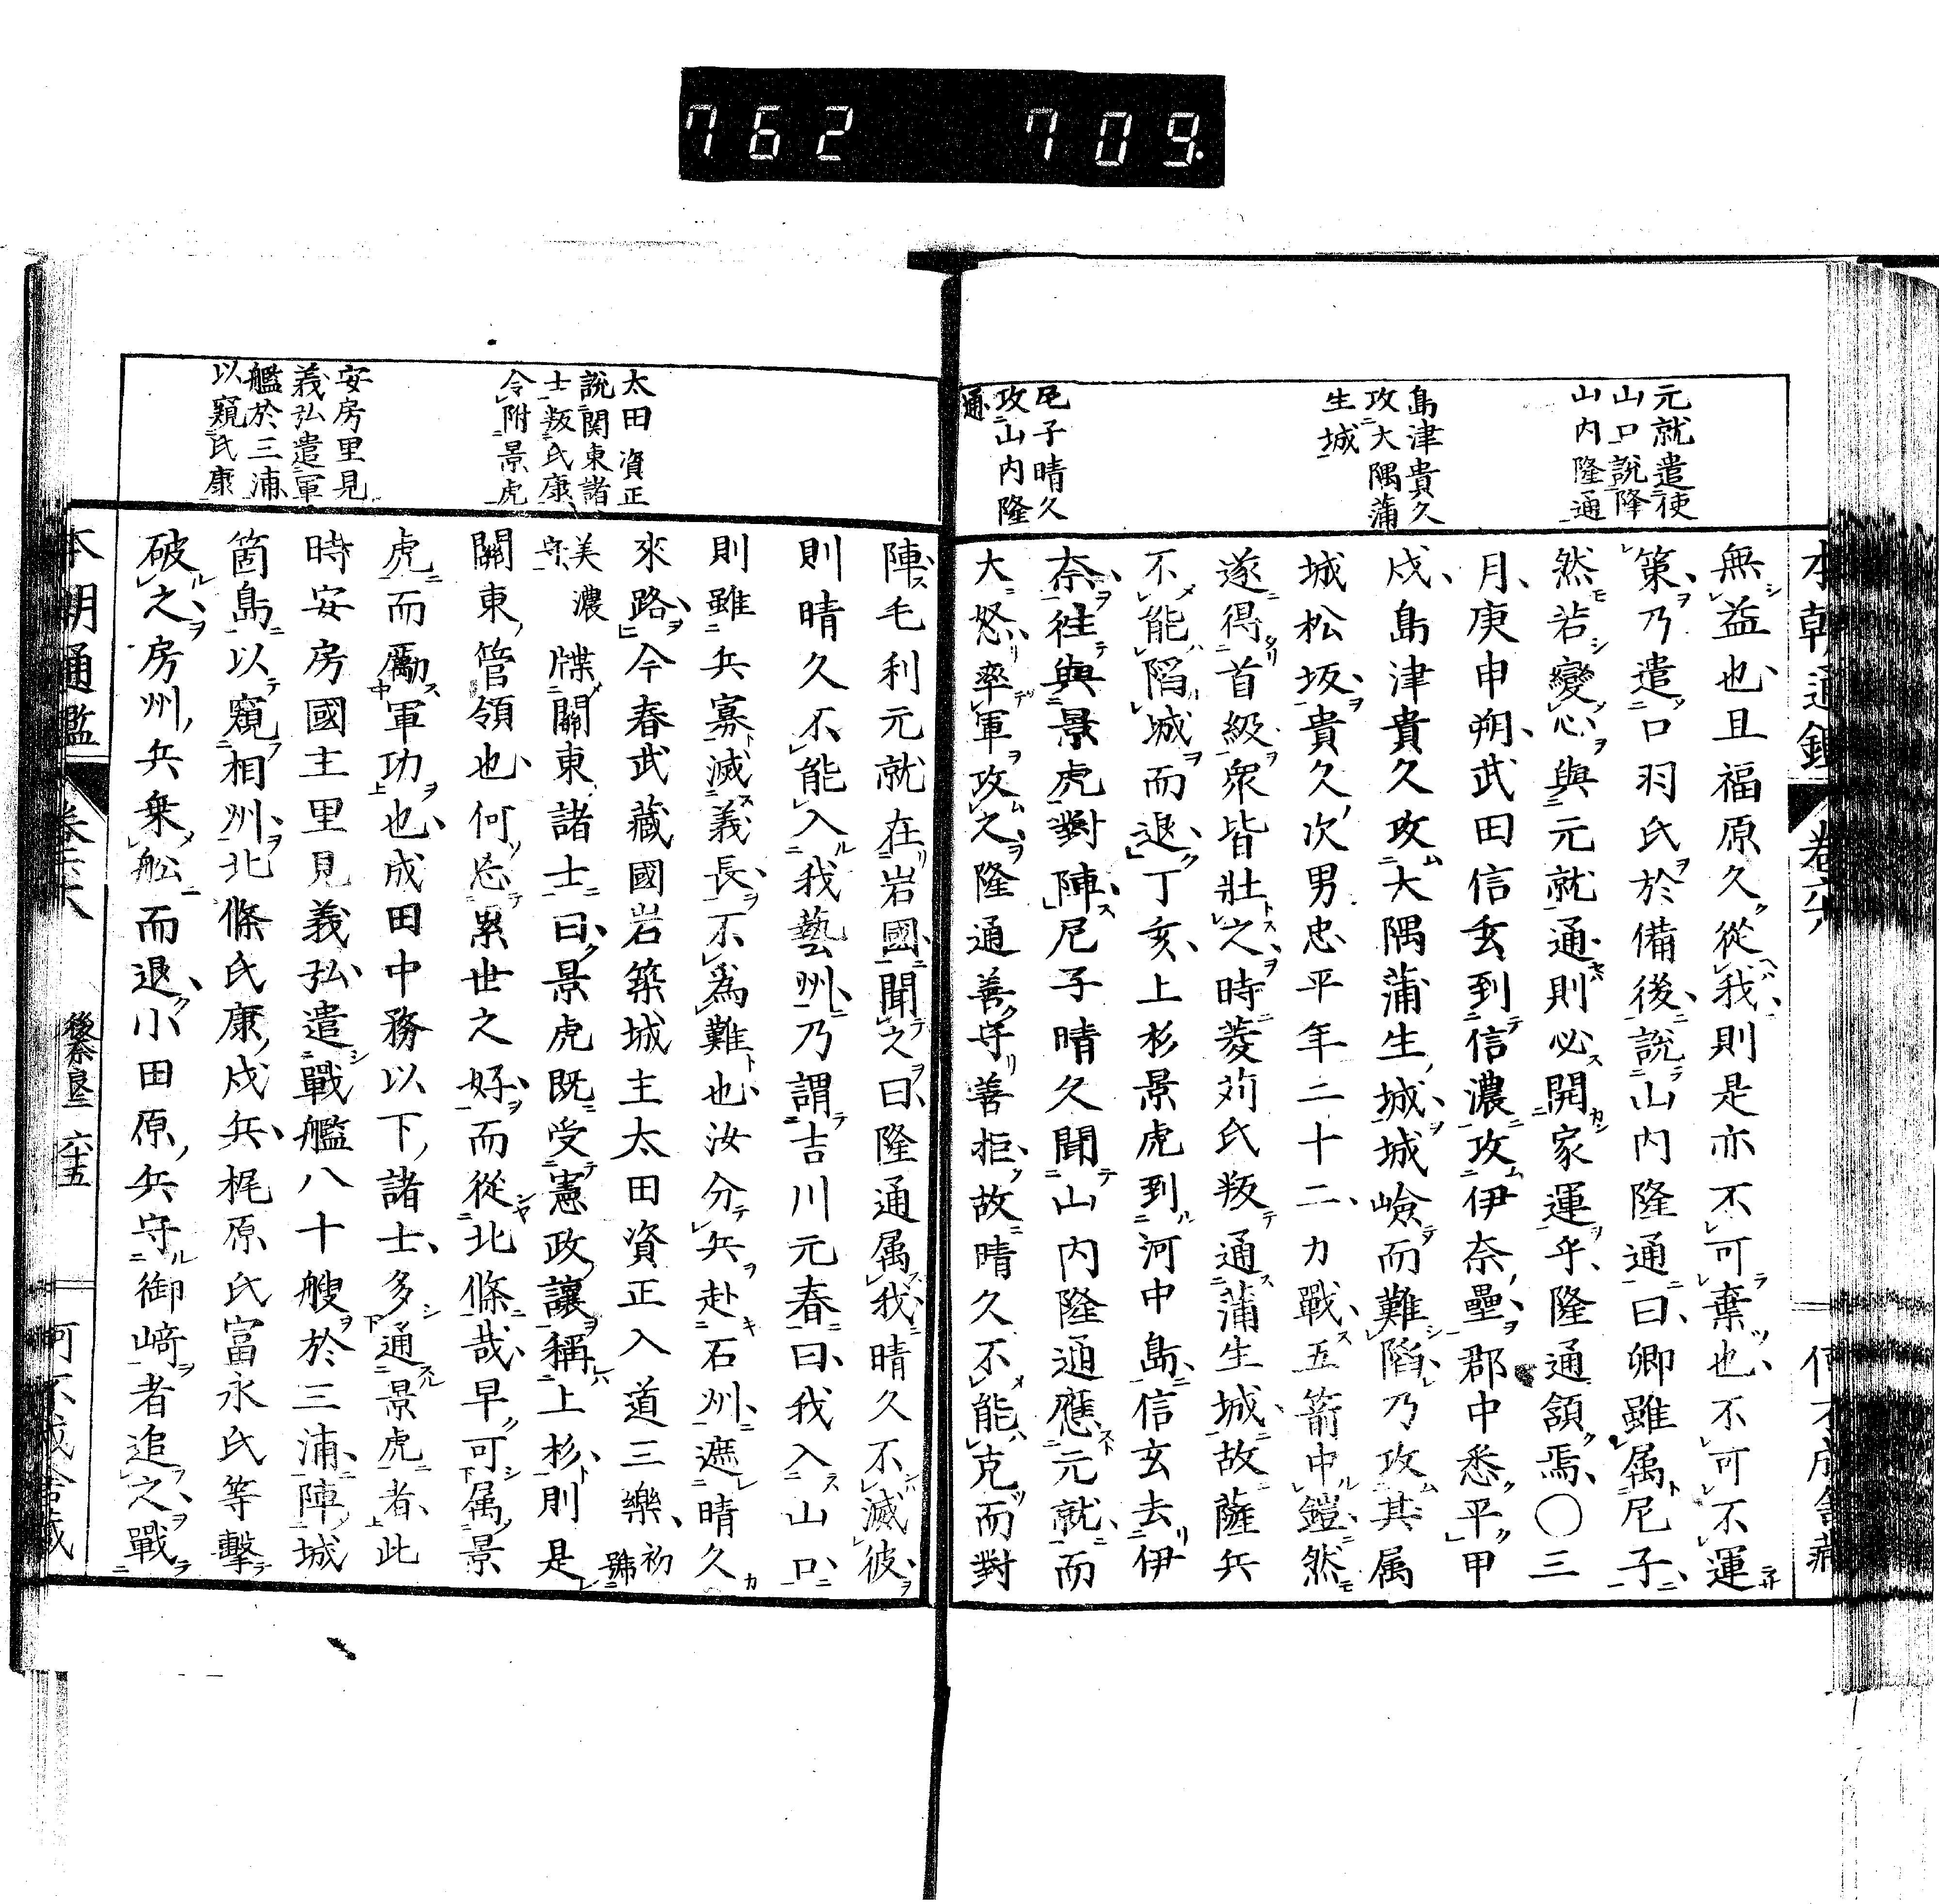 762 709.
元就遣使
山口說降
山内隆通
島津貴久
攻大隅蒲
生城
尼子晴久
攻山内隆
通
無益也且福原久從我則是亦不可棄也不可不運
策乃遣口羽氏於備後說山内隆通曰卿雖属尼子
然若變心與元就通則必開家運乎隆通頷焉〇三
月庚申朔武田信玄到信濃攻伊奈壘郡中悉平甲
戌島津貴久攻大隅蒲生城城嶮而難陷乃攻其属
城松坂貴久次男忠平年二十二力戰五箭中鎧然
遂得首級衆皆壯之時菱苅氏叛通蒲生城故薩兵
不能陷城而退丁亥上杉景虎到河中島信玄去伊
奈往與景虎對陣尼子晴久聞山内隆通應元就而
大怒率軍攻之隆通善守善拒故晴久不能克而對
太田資正
說関東諸
士叛氏康
令附景虎
安房里見
義弘遣軍
艦於三浦
以窺氏康
陣毛利元就在岩國聞之曰隆通属我晴久不滅彼
則晴久不能入我藝州乃謂吉川元春曰我入山口
則雖兵寡滅義長不爲難也汝分兵赴石州遮晴久
來路今春武藏國岩築城主太田資正入道三樂初號
美濃守牒關東諸士曰景虎既受憲政讓稱上杉則是
關東管領也何忘累世之好而從北條哉早可属景
虎而勵軍功也成田中務以下諸士多通景虎者此
時安房國主里見義弘遣戰艦八十艘於三浦陣城
箇島以窺相州北條氏康戍兵梶原氏富永氏等擊
破之房州兵乗舩而退小田原兵守御﨑者追之戰
本朝通鑑 卷六 後奈良三 六十五